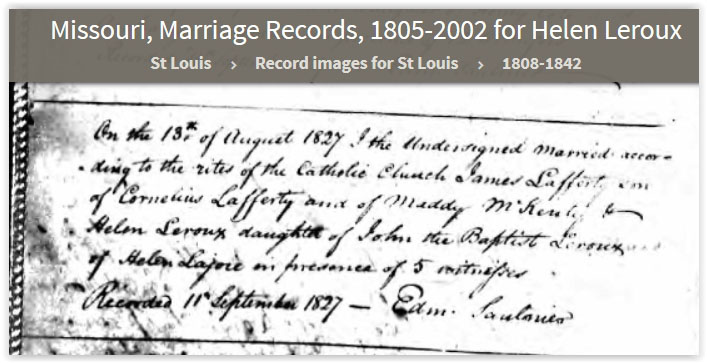 Missouri, Marriage Records, 1805-2002 for Helen Leroux
St Louis > Record images for St Louis > 1808-1842
On the 13th of August 1827 I the Undersigned Married accor-
ding to the rites of the Catholic Church James Lafferty son
of Cornelius Lafferty and of Maddy &
Helen Leroux daughter of John the Baptist Leroux and
of Helen Lajoie in presence of 5 witnesses
Recorded 11th September 1827 — Edm. Saulnier